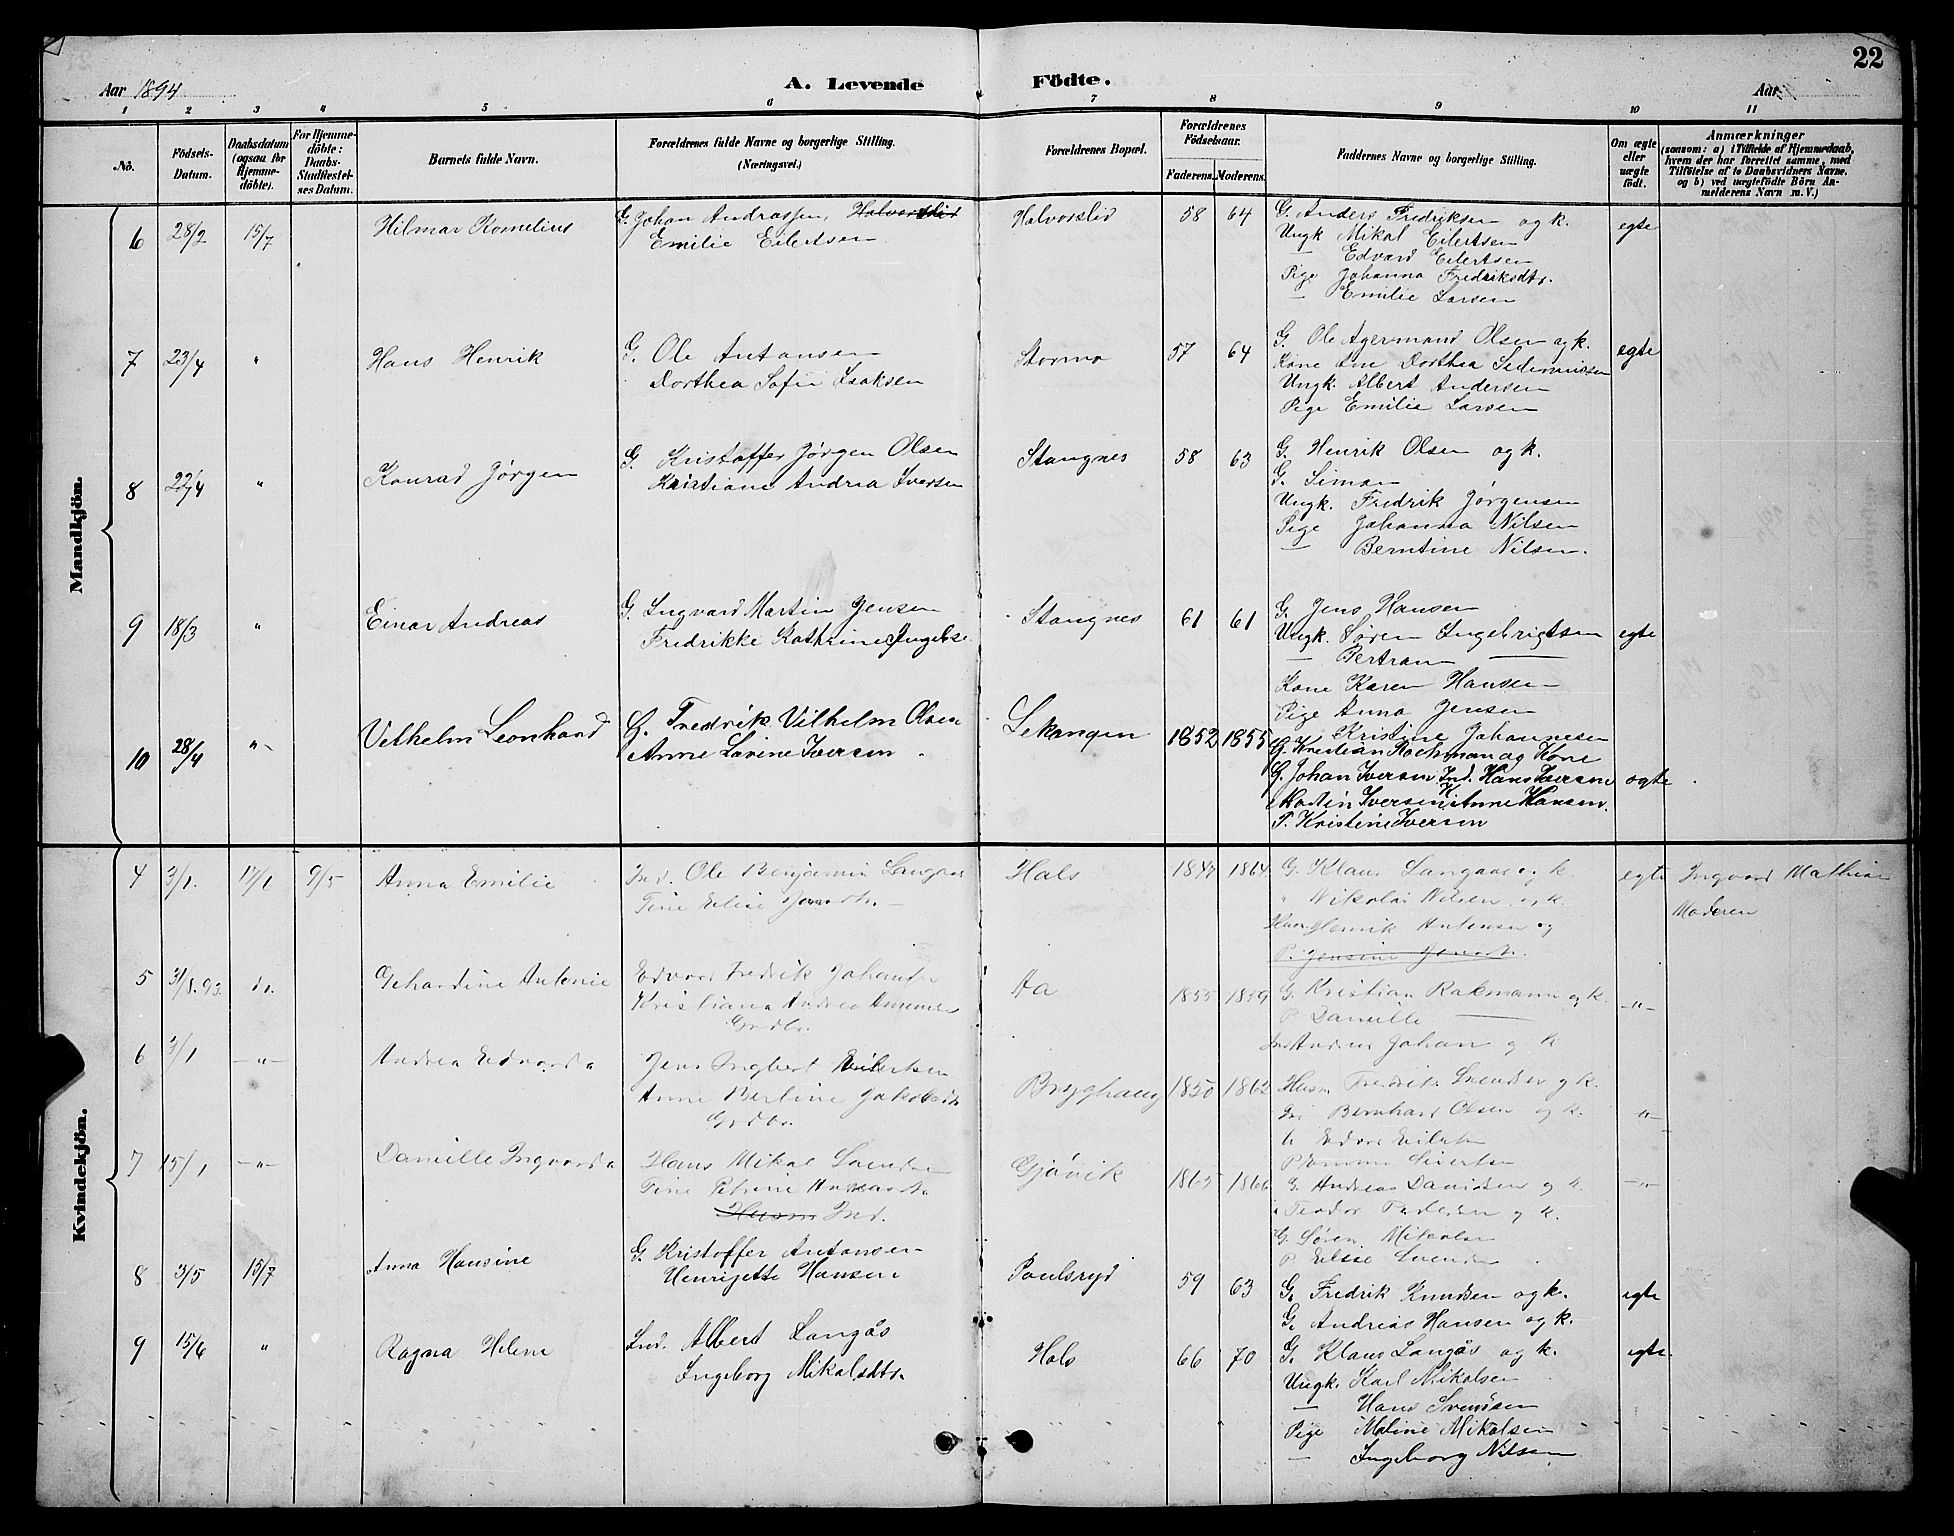 22
Aar 1894
A. Levende Födte.
Aar
1 2 3 4 5 6 7 8 9 10 11
No.
Födsels-Datum.
Daabsdatum (ogsaa for Hjemme-döbte).
For Hjemme-döbte: Daabs-Stadfæstel-ses Datum.
Barnets fulde Navn.
Forældrenes fulde Navne og borgerlige Stilling. (Næringsvei.)
Forældrenes Bopæl.
Forældrenes Födselsaar.
Faderens. Moderens.
Faddernes Navne og borgerlige Stilling.
Om ægte eller uægte födt.
Anmærkninger (saasom: a) i Tilfælde af Hjemmedaab, hvem der har forrettet samme, med Tilföielse af to Daabsvidners Navne. og b) ved uægtefödte Börn An-melderens Navn m. V.)
Mandkjön.
6 28/2 15/7 Hilmar Kornelius G. Johan Andreassen, Halvorslid Halvorslid 58 64 G. Anders Fredriksen og k. egte
Emilie Eilertsen
Ungk Mikal Eilertsen
— Edvard Eilertsen
Pige Johanna Fredriksdtr.
— Emilie Larsen
7 23/4 " Hans Henrik G. Ole Antonsen Stormo 57 64 G. Ole Agermand Olsen og k. egte
Dorthea Sofie Isaksen
Kone Ane Dorthea
Ungk. Albert Andersen
Pige Emilie Larsen
8 22/4 " Konrad Jørgen G. Kristoffer Jørgen Olsen Stangnes 58 63 G. Henrik Olsen og k.
Kristiane Andrea Iversen
G. Simon
Ungk. Fredrik Jørgensen
Pige Johanna Nilsen
— Berntine Nilsen.
9 18/3 " Einar Andreas G. Ingvard Martin Jensen Stangnes 61 61 G. Jens Hansen
Fredrikke Kathrine Ingebr
Ungk. Søren Ingebrigtsen egte
— Bertran —
Kone Karen Hansen
Pige Anna Jensen
Kristine Johannesen
10 28/4 -"- Vilhelm Leonhard G. Fredrik Vilhelm Olsen Lekangen 1852 1855 G. Kristian Rochman og Kone
Anne Lovine Iversen.
G. Johan Iversen Ind. Hans Iversen egte
Martin Iversen K. Anne Hansen.
P. Kristine Iversen
Kvindekjön.
4 3/1. 17/1 9/5 Anna Emilie Ind. Ole Benjamin Langaas Hals 1864 G. Klaus Langaas og k. egte Ingvard Mathias
Tine Elise
" Nikolai Nilsen og k. Moderen
Henrik Antonsen og
P. Jensine
5 3/8.93. do. Gehardine Antonie Edvard Fredrik Johans Aa 1855 1859 G. Kristian Rakmann og k. -"-
Kristiana Andrea
Grdbr.
P Danielle —
Andreas Johan og k
6 3/1 -"- Andrea Edvarda Jens Ingbert Eilertsen Bryghaug 1850 1862 Husm Fredrik Svendsen og k.
Anne Berline Jakobsdtr
Grdbr.
Bernhard Olsen og k. -"-
U Edvard Eilertsen
P Sivertsen
7 15/1 -"- Danielle Ingvarda Hans Mikal Svendsen Gjøvik 1865 1866 G. Andreas Danielsen og k. -"-
Tine Petrine
Husm Ind.
Teodor Pedersen og k.
G. Søren Mikalsen
P. Elise Svendsen
8 3/5 15/7 Anna Hansine G. Kristoffer Antonsen Paulsryd 59 63 G. Fredrik Knudsen og k. egte
Henrijette Hansen
G. Andreas Hansen og k.
9 15/6 " Ragna Helene Ind. Albert Langås Hals 66 70 G. Klaus Langås og k. egte
Ingeborg Mikalsdtr.
Ungk. Karl Mikalsen
— Hans Svendsen
Pige Maline Mikalsen
— Ingeborg Nilsen